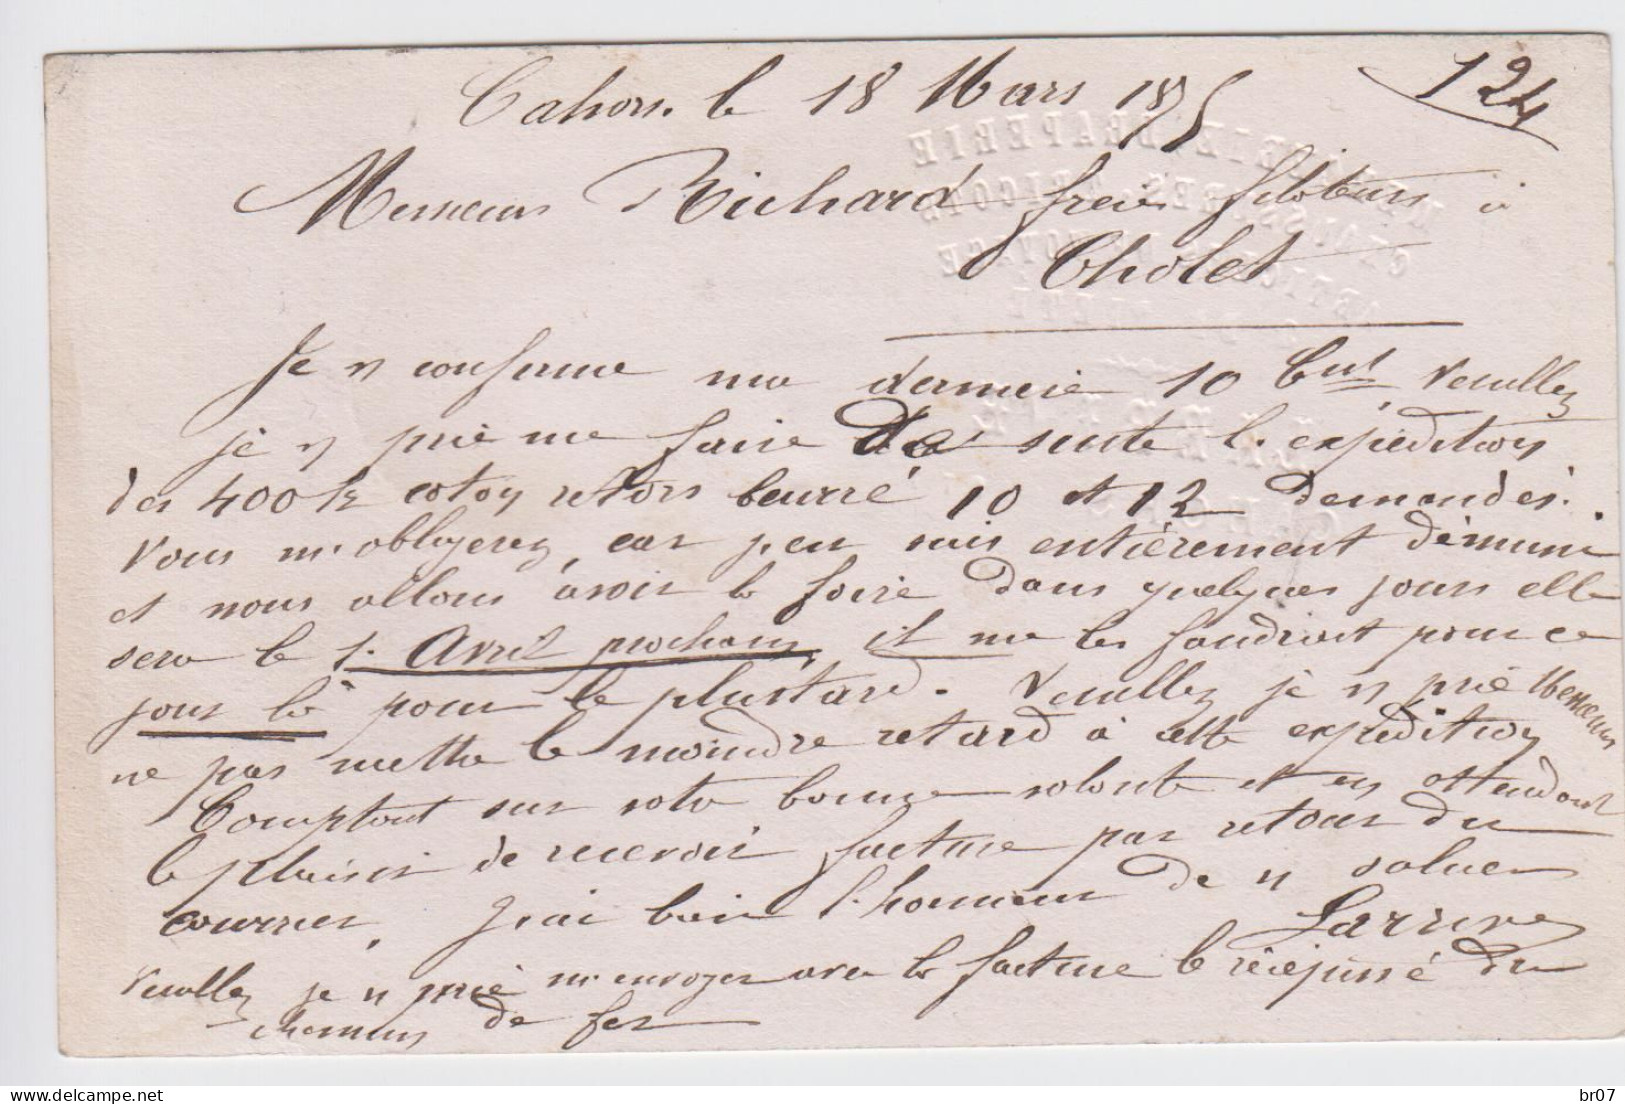 Cahors le 18 Mars 1875
124
Messieurs Richard frères filateurs à
Cholet
Je v confirme ma dernière 10 Cnt Veuillez
je v prie me faire de suite l'expédition
des 400 k coton retors beurré 10 et 12 demandés.
Vous m'obligerez, car j'en suis entièrement démuni
et nous allons avoir la foire dans quelques jours elle
sera le 1. Avril prochain, il me les faudrait pour ce
jour là pour le plustard. Veuillez je v prie Messieurs
ne pas mettre le moindre retard à cette expédition
Comptant sur votre bonne volonté et en attendant
le plaisir de recevoir facture par retour du
courrier, J'ai bien l'honneur de v saluer
Larrive
Veuillez je v prie m'envoyer avec la facture le récépissé du
chemin de fer
br07